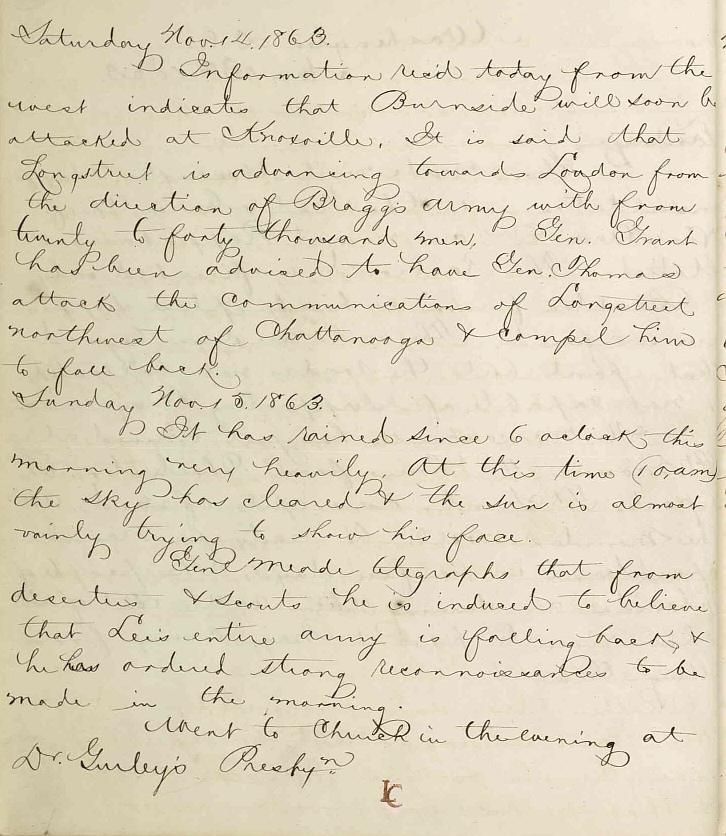 Saturday Nov. 14, 1863.
Information rec'd today from the
west indicates that Burnside will soon be
attacked at Knoxville. It is said that
Longstreet is advancing towards Loudon from
the direction of Bragg's army with from
twenty to forty thousand men. Gen. Grant
has been advised to have Gen. Thomas
attack the communications of Longstreet
northwest of Chattanooga & compel him
to fall back.
Sunday Nov. 15. 1863.
It has rained since 6 oclock this
morning very heavily. At this time (10, am)
the sky has cleared & the sun is almost
vainly trying to show his face.
Genl Meade telegraphs that from
deserters & scouts he is induced to believe
that Lees entire army is falling back, &
he has ordered strong reconnoissances to be
made in the morning.
Went to Church in the evening at
Dr. Gurley's Presbyn.
LC